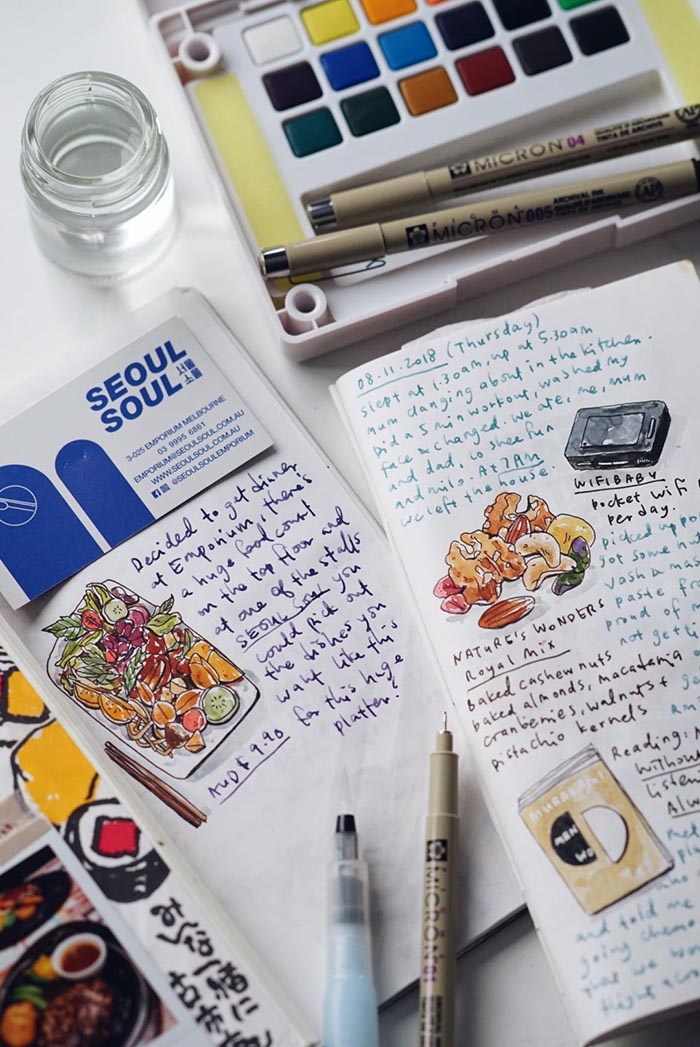 MICRON 04
ARCHIVAL INK
TINTA DE ARCHIVO
AP
MICRON 005
ARCHIVAL INK
AP
SEOUL
SOUL
서울
소울
3-025 EMPORIUM MELBOURNE
03 9995 6861
EMPORIUM@SEOULSOUL.COM.AU
WWW.SEOULSOUL.COM.AU
@SEOULSOULEMPORIUM
Decided to get dinner
at Emporium there's
a huge food court
on the top floor and
at one of the stalls
SEOUL SOUL you
could pick out
the dishes you
want like this
for this huge
platter!
AUD$ 9.90
08.11.2018 (Thursday)
slept at 1:30am, up at 5:30am
mum clanging about in the kitchen.
Did a 5 min workout, washed my
face & changed. We ate, me, mum
and dad, lo shee fun
and milo. At 7AM
we left the house.
WIFIBABY
pocket wifi
per day.
picked up
got some
proud of
not
NATURE'S WONDERS
Royal Mix
baked cashewnuts
baked almonds, macadamia
cranberries, walnuts +
pistachio kernels
Reading:
Without
listen
MURAKAMI
MEN
WO
and told me
going
that we
flight
MICRON
みんな一緒に